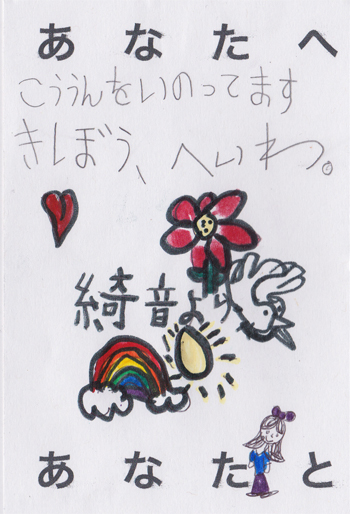 あなたへ
こううんをいのってます
きしぼう、へいわ。
綺音より
あなたと